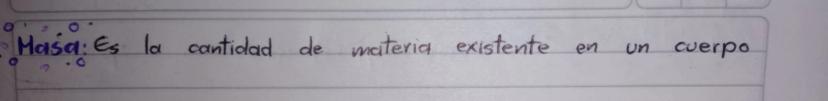 Masa: Es la cantidad de materia existente en un cuerpo